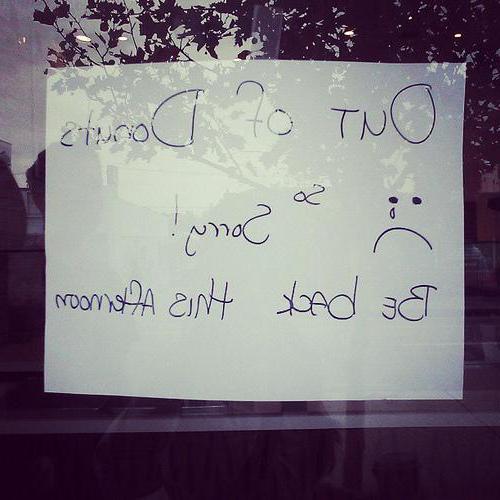 Out of Donuts
So
Sorry!
Be back this Afternoon